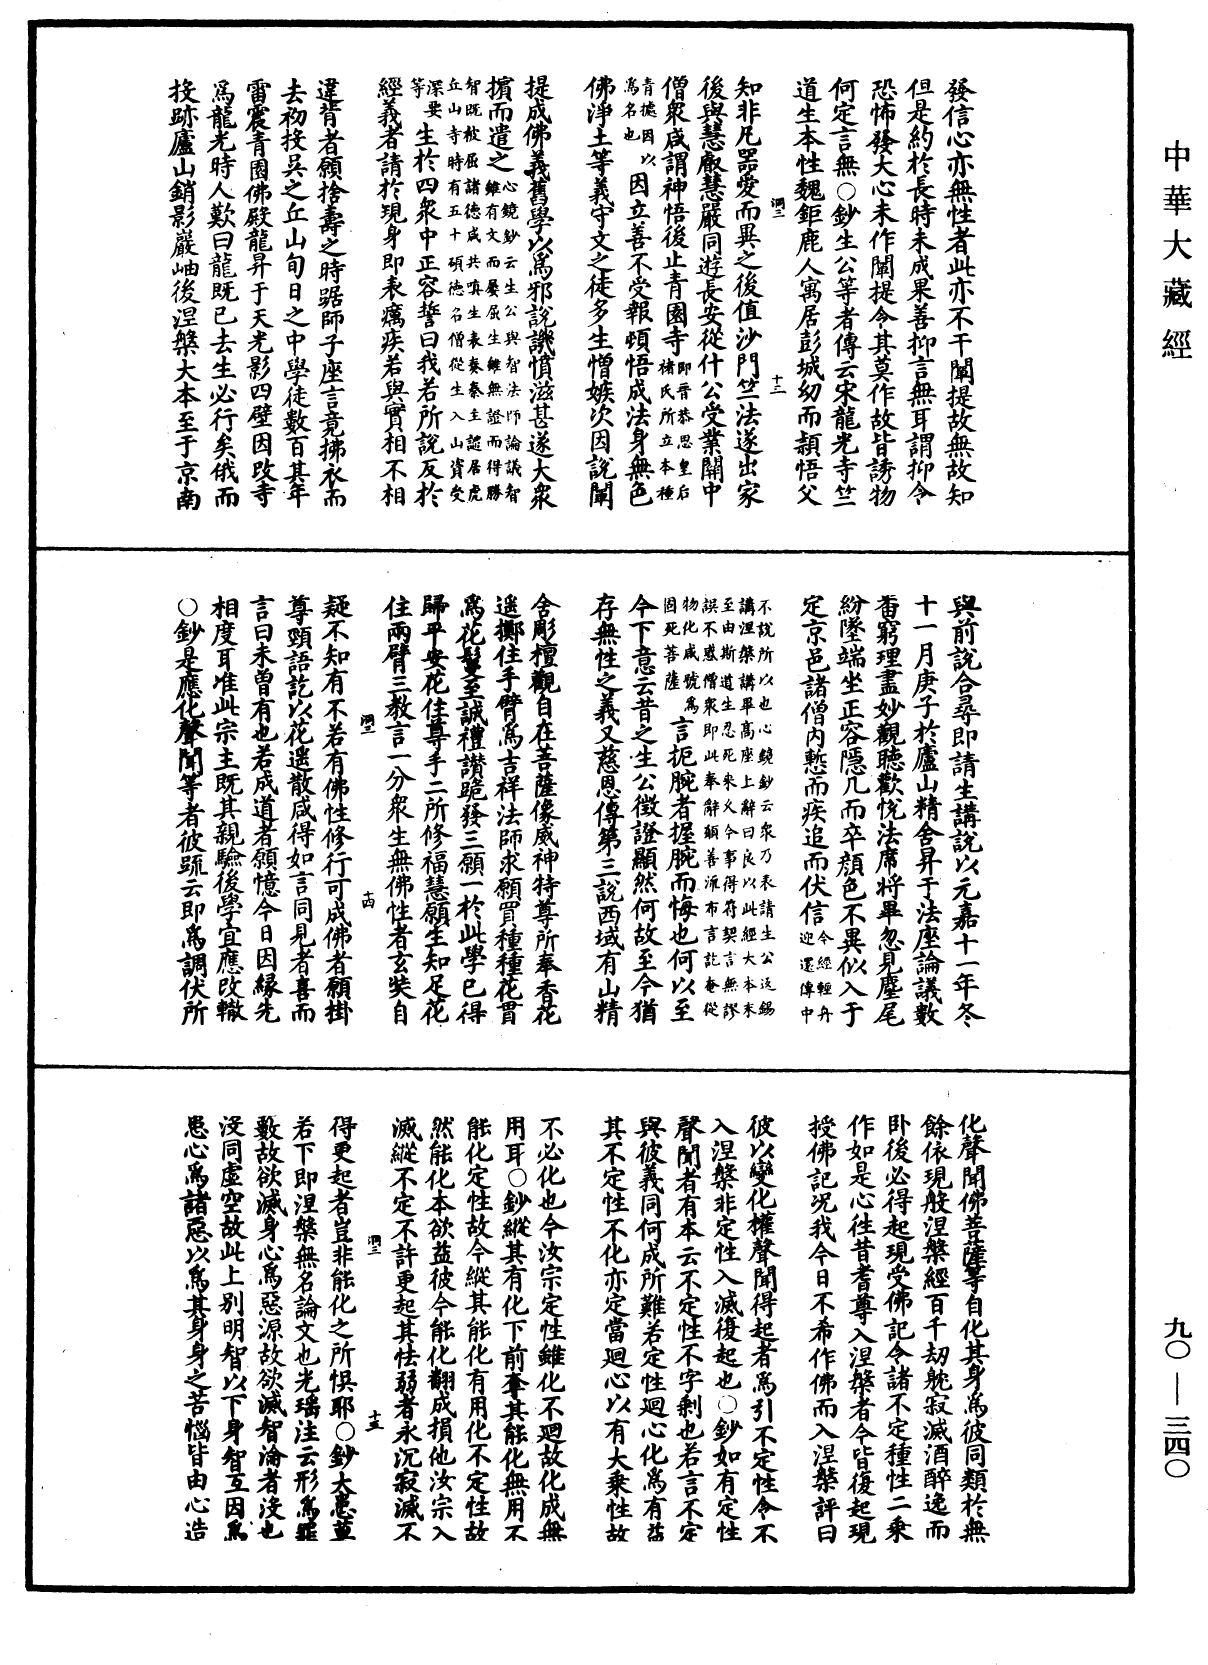 中華大藏經
九〇—三四〇
發信心亦無性者此亦不干闡提故無故知
但是約於長時未成果善抑言無耳謂抑令
恐怖發大心未作闡提令其莫作故皆誘物
何定言無○鈔生公等者傳云宋龍光寺竺
道生本性魏鉅鹿人寓居彭城幼而頴悟父
洞三 十三
知非凡器愛而異之後值沙門竺法遂出家
後與慧厳慧嚴同遊長安從什公受業關中
僧衆咸謂神悟後止青園寺即晋恭思皇后
褚氏所立本種
青擄因以
爲名也因立善不受報頓悟成法身無色
佛淨土等義守文之徒多生憎嫉次因說闡
提成佛義舊學以爲邪說譏憤滋甚遂大衆
擯而遣之心鏡鈔云生公與智法師論議智
雖有文而屢屈生雖無證而得勝
智既被屈諸德咸共嗔生表奏秦主謚居虎
丘山寺時有五十碩德名僧從生入山資受
深要
等生於四衆中正容誓曰我若所說反於
經義者請於現身即表癘疾若與實相不相
違背者願捨壽之時踞師子座言竟拂衣而
去初投吳之丘山旬日之中學徒數百其年
雷震青園佛殿龍昇于天光影四壁因改寺
爲龍光時人歎曰龍既已去生必行矣俄而
投跡廬山銷影巖岫後涅槃大本至于京南
與前說合尋即請生講說以元嘉十一年冬
十一月庚子於廬山精舍昇于法座論議數
番窮理盡妙觀聽歡悅法席將畢忽見麈尾
紛墜端坐正容隱几而卒顔色不異似入于
定京邑諸僧內慙而疚追而伏信今經輕舟
迎還傳中
不說所以也心鏡鈔云衆乃表請生公返錫
講涅槃講畢高座上辭曰良以此經大本未
至由斯道生忍死來久今事得符契言無謬
誤不惑僧衆即此奉辭願善流布言訖奄從
物化咸號爲
固死菩薩言扼腕者握腕而悔也何以至
今下意云昔之生公徵證顯然何故至今猶
存無性之義又慈恩傳第三說西域有山精
舍彫檀觀自在菩薩像威神特尊所奉香花
遥擲住手臂爲吉祥法師求願買種種花貫
爲花鬘至誠禮讚跪發三願一於此學已得
歸平安花住尊手二所修福慧願生知足花
住兩臂三教言一分衆生無佛性者玄奘自
洞三 十四
疑不知有不若有佛性修行可成佛者願掛
尊頸語訖以花遥散咸得如言同見者喜而
言曰未曽有也若成道者願憶今日因緣先
相度耳唯此宗主既其親驗後學宜應改轍
○鈔是應化聲聞等者彼䟽云即爲調伏所
化聲聞佛菩薩等自化其身爲彼同類於無
餘依現般涅槃經百千劫躭寂滅酒醉逸而
卧後必得起現受佛記令諸不定種性二乗
作如是心徃昔耆尊入涅槃者今皆復起現
授佛記况我今日不希作佛而入涅槃評曰
彼以變化權聲聞得起者爲引不定性令不
入涅槃非定性入滅復起也○鈔如有定性
聲聞者有本云不定性不字剩也若言不定
與彼義同何成所難若定性迴心化爲有益
其不定性不化亦定當迴心以有大乗性故
不必化也今汝宗定性雖化不迴故化成無
用耳○鈔縱其有化下前奪其能化無用不
能化定性故今縱其能化有用化不定性故
然能化本欲益彼今能化翻成損他汝宗入
滅縱不定不許更起其怯弱者永沉寂滅不
洞三 十五
得更起者豈非能化之所悞耶○鈔大患莫
若下即涅槃無名論文也光瑤注云形爲罪
藪故欲滅身心爲惡源故欲滅智淪者沒也
沒同虛空故此上別明智以下身智互因爲
患心爲諸惡以爲其身身之苦惱皆由心造